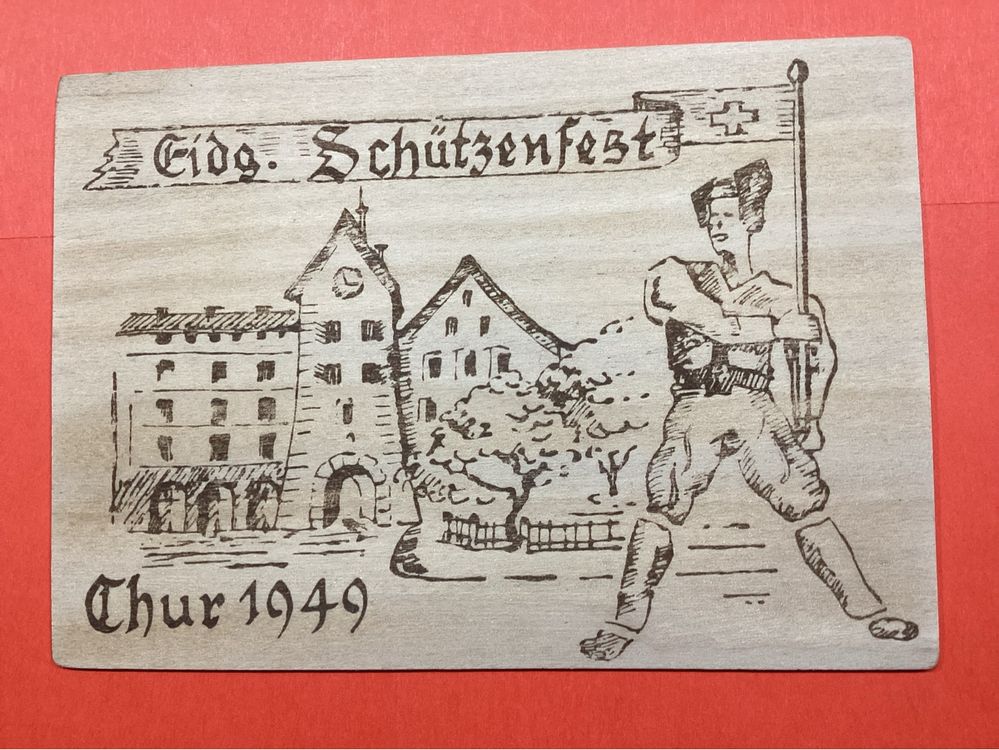 Eidg. Schützenfest
Chur 1949